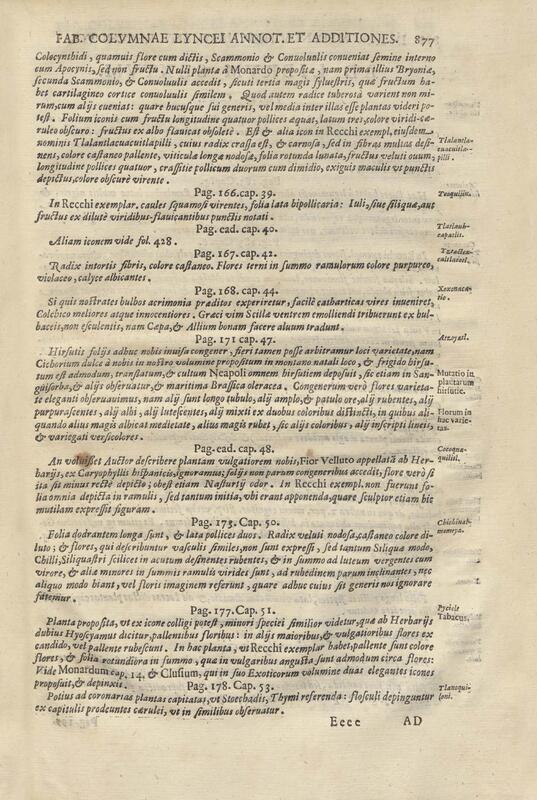 FAB. COLVMNAE LYNCEI ANNOT. ET ADDITIONES. 877
Colocynthidi, quamuis flore cum dictis, Scammonio & Conuoluulis conueniat semine interno
cum Apocynis, sed non fructu. Nulli plantæ à Monardo propositæ, nam prima illius Bryoniæ,
secunda Scammonio, & Conuoluulis accedit, sicuti tertia magis syluestris, quæ fructum ha-
bet cartilagineo cortice conuoluulis similem. Quod autem radice tuberosa varient non mi-
rum, cum alijs eueniat: quare hucusque sui generis, vel media inter illas esse plantas videri po-
test. Folium iconis cum fructu longitudine quatuor pollices æquat, latum tres, colore viridi-cæ-
ruleo obscuro: fructus ex albo flauicat obsoletè. Est & alia icon in Recchi exempl. eiusdem
nominis Tlalantlacuacuitlapilli, cuius radix crassa est, & carnosa, sed in fibras multas desi-
nens, colore castaneo pallente, viticula longæ nodosæ, folia rotunda lunata, fructus veluti ouum,
longitudine pollices quatuor, crassitie pollicum duorum cum dimidio, exiguis maculis vt punctis
depictus, colore obscurè virente.
Tlalantla-
cuacuitla-
pilli.
Pag. 166. cap. 39.
In Recchi exemplar. caules squamosi virentes, folia lata bipollicaria: Iuli, siue siliquæ, aut
fructus ex dilutè viridibus-flauicantibus punctis notati.
Pag. ead. cap. 40.
Aliam iconem vide fol. 428.
Pag. 167. cap. 42.
Radix intortis fibris, colore castaneo. Flores terni in summo ramulorum colore purpureo,
violaceo, calyce albicantes.
Pag. 168. cap. 44.
Si quis nostrates bulbos acrimonia præditos experiretur, facilè catharticas vires inueniret,
Colchico meliores atque innocentiores. Græci vim Scillæ ventrem emolliendi tribuerunt ex bul-
baceis, non esculentis, nam Cæpa, & Allium bonam facere aluum tradunt.
Pag. 171 cap. 47.
Hirsutis folijs adhuc nobis inuisa congener, fieri tamen posse arbitramur loci varietate, nam
Cichorium dulce à nobis in nostro volumine propositum in montano natali loco, & frigido hirsu-
tum est admodum, translatum, & cultum Neapoli omnem hirsutiem deposuit, sic etiam in San-
guisorba, & alijs obseruatur, & maritima Brassica oleracea. Congenerum verò flores varieta-
te eleganti obseruauimus, nam alij sunt longo tubulo, alij amplo, & patulo ore, alij rubentes, alij
purpurascentes, alij albi, alij lutescentes, alij mixti ex duobus coloribus distincti, in quibus ali-
quando alius magis albicat medietate, alius magis rubet, sic alijs coloribus, alij inscripti lineis,
& variegati versicolores.
Mutatio in
plantarum
hirsutie.
Florum in
hac varie-
tas.
Pag. ead. cap. 48.
An voluisset Auctor describere plantam vulgatiorem nobis, Fior Velluto appellatã ab Her-
barijs, ex Caryophyllis hispanicis, ignoramus; folijs non parum congeneribus accedit, flore verò si
ita sit minus rectè depicto; obest etiam Nasturtij odor. In Recchi exempl. non fuerunt fo-
lia omnia depicta in ramulis, sed tantum initia, vbi erant apponenda, quare sculptor etiam hic
mutilam expressit figuram.
Pag. 173. Cap. 50.
Folia dodrantem longa sunt, & lata pollices duos. Radix veluti nodosa, castaneo colore di-
luto; & flores, qui describuntur vasculis similes, non sunt expressi, sed tantum Siliquæ modo,
Chilli, Siliquastri scilicet in acutum desinentes rubentes, & in summo ad luteum vergentes cum
virore, & aliæ minores in summis ramulis virides sunt, ad rubedinem parum inclinantes, nec
aliquo modo hiant, vel floris imaginem referunt, quare adhuc cuius sit generis nos ignorare
fatemur.
Pag. 177. Cap. 51.
Planta proposita, vt ex icone colligi potest, minori speciei similior videtur, quæ ab Herbarijs
dubius Hyoscyamus dicitur, pallensibus floribus: in alijs maioribus, & vulgatioribus flores ex
candido, vel pallente rubescunt. In hac planta, vt Recchi exemplar habet, pallente sunt colore
flores, & folia rotundiora in summo, quæ in vulgaribus angusta sunt admodum circa flores:
Vide Monardum cap. 14. & Clusium, qui in suo Exoticorum volumine duas elegantes icones
proposuit, & depinxit.
Pyciele
Tabacus.
Pag. 178. Cap. 53.
Potius ad coronarias plantas capitatas, vt Stoechadis, Thymi referenda: flosculi depinguntur
ex capitulis prodeuntes cærulei, vt in similibus obseruatur.
Eeee AD